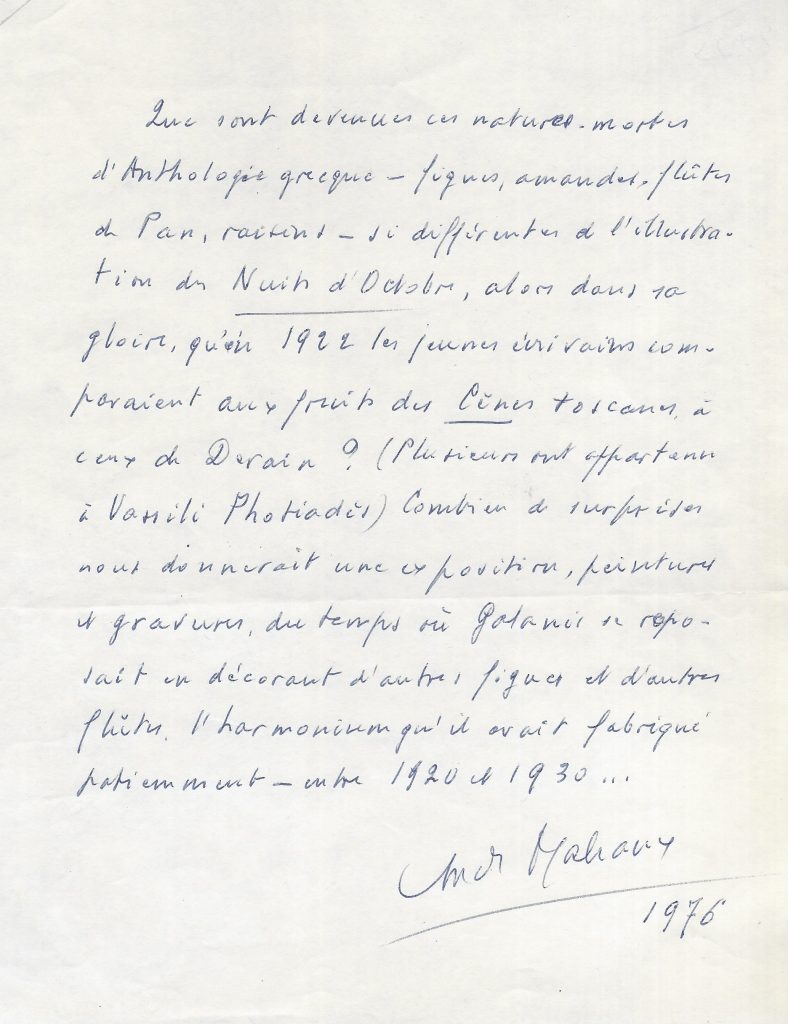 Que sont devenues ces natures-mortes
d'Anthologie grecque – figues, amandes, flûtes
de Pan, raisins – si différentes de l'illustra-
tion des Nuits d'Octobre, alors dans sa
gloire, qu'en 1922 les jeunes écrivains com-
paraient aux fruits des Cènes toscanes, à
ceux de Derain ? (Plusieurs ont appartenu
à Vassili Photiadès) Combien de surprises
nous donnerait une exposition, peintures
et gravures, du temps où Galanis se repo-
sait en décorant d'autres figues et d'autres
flûtes, l'harmonium qu'il avait fabriqué
patiemment – entre 1920 et 1930 ...
André Malraux
1976